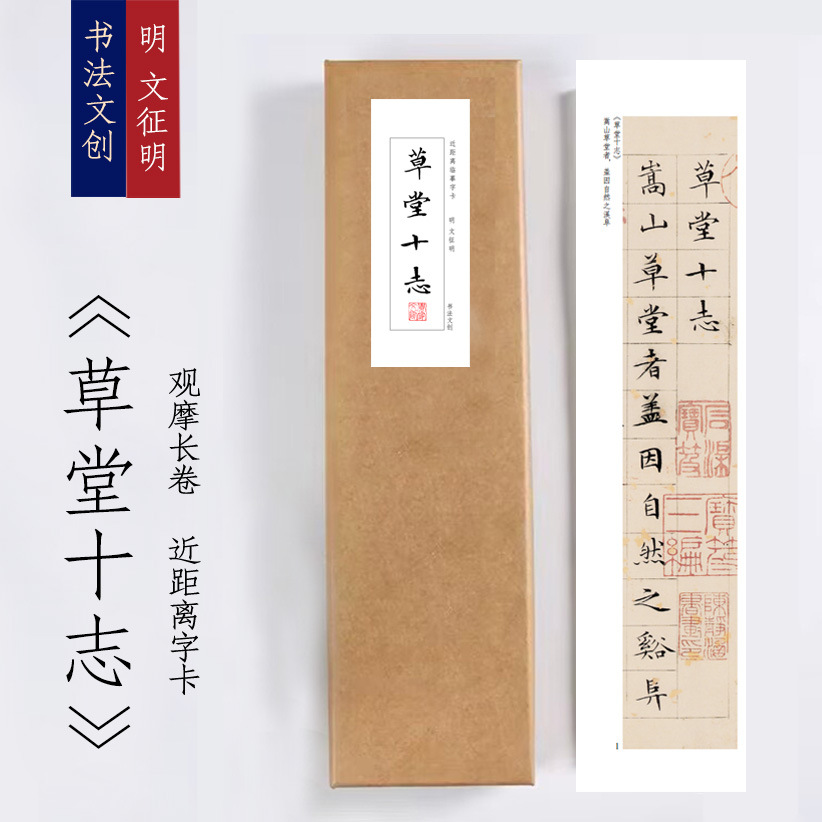 明 文征明
书法文创
《草堂十志》
观摩长卷 近距离字卡
近距离临摹字卡 明 文征明 书法文创
草堂十志
《草堂十志》
嵩山草堂者，盖因自然之溪阜
草堂十志
嵩山草堂者盖因自然之谿阜
石渠寶笈
寶笈三編
1